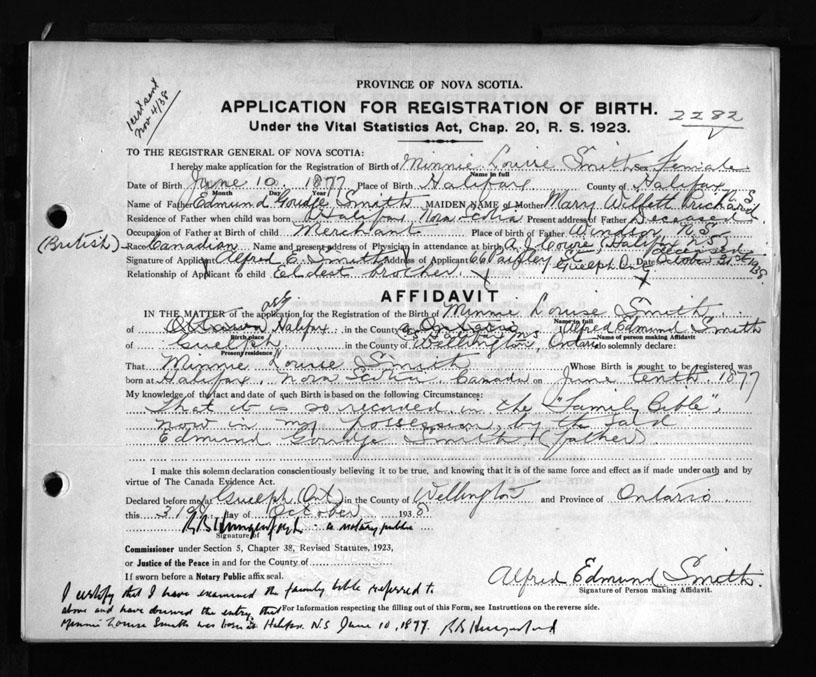 PROVINCE OF NOVA SCOTIA.
APPLICATION FOR REGISTRATION OF BIRTH. 2282
Under the Vital Statistics Act, Chap. 20, R. S. 1923.
Nov 4/38
TO THE REGISTRAR GENERAL OF NOVA SCOTIA:
I hereby make application for the Registration of Birth of Minnie Louise Smith Sex Female
Name in full
Date of Birth June 10 1877 Place of Birth Halifax County of Halifax
Month Day Year
Name of Father Edmund Goudge Smith MAIDEN NAME of Mother Mary Prichard
Residence of Father when child was born Halifax Nova Scotia Present address of Father Deceased
Occupation of Father at Birth of child Merchant Place of birth of Father Windsor, N.S.
(British) Race Canadian Name and present address of Physician in attendance at birth Halifax N.S. Deceased
Signature of Applicant Alfred E. Smith Address 66 Paisley St Guelph Ont Date October 31st 1938
Relationship of Applicant to child Eldest brother.
AFFIDAVIT
IN THE MATTER of the application for the Registration of the Birth of Minnie Louise Smith
Name in full
of Ottawa Halifax in the County of Ontario Halifax NS I Alfred Edmund Smith
Birth place Name of person making Affidavit
of Guelph in the County of Wellington, Ontario, do solemnly declare:
Present residence
That Minnie Louise Smith Whose Birth is sought to be registered was
born at Halifax, Nova Scotia, Canada on June tenth, 1877
My knowledge of the fact and date of such Birth is based on the following Circumstances:
That it is so recorded in the "Family Bible",
now in my possession, by the said
Edmund Goudge Smith (father)
I make this solemn declaration conscientiously believing it to be true, and knowing that it is of the same force and effect as if made under oath and by
virtue of The Canada Evidence Act.
Declared before me at Guelph Ont in the County of Wellington and Province of Ontario
this 31st day of October 1938
R B Hungerford a notary public
Signature of
Commissioner under Section 5, Chapter 38, Revised Statutes, 1923,
or Justice of the Peace in and for the County of
If sworn before a Notary Public affix seal.
Alfred Edmund Smith
Signature of Person making Affidavit.
I certify that I have examined the family bible referred to
above and have the entry that
For Information respecting the filling out of this Form, see Instructions on the reverse side.
Minnie Louise Smith was born at Halifax N.S June 10, 1877. R B Hungerford